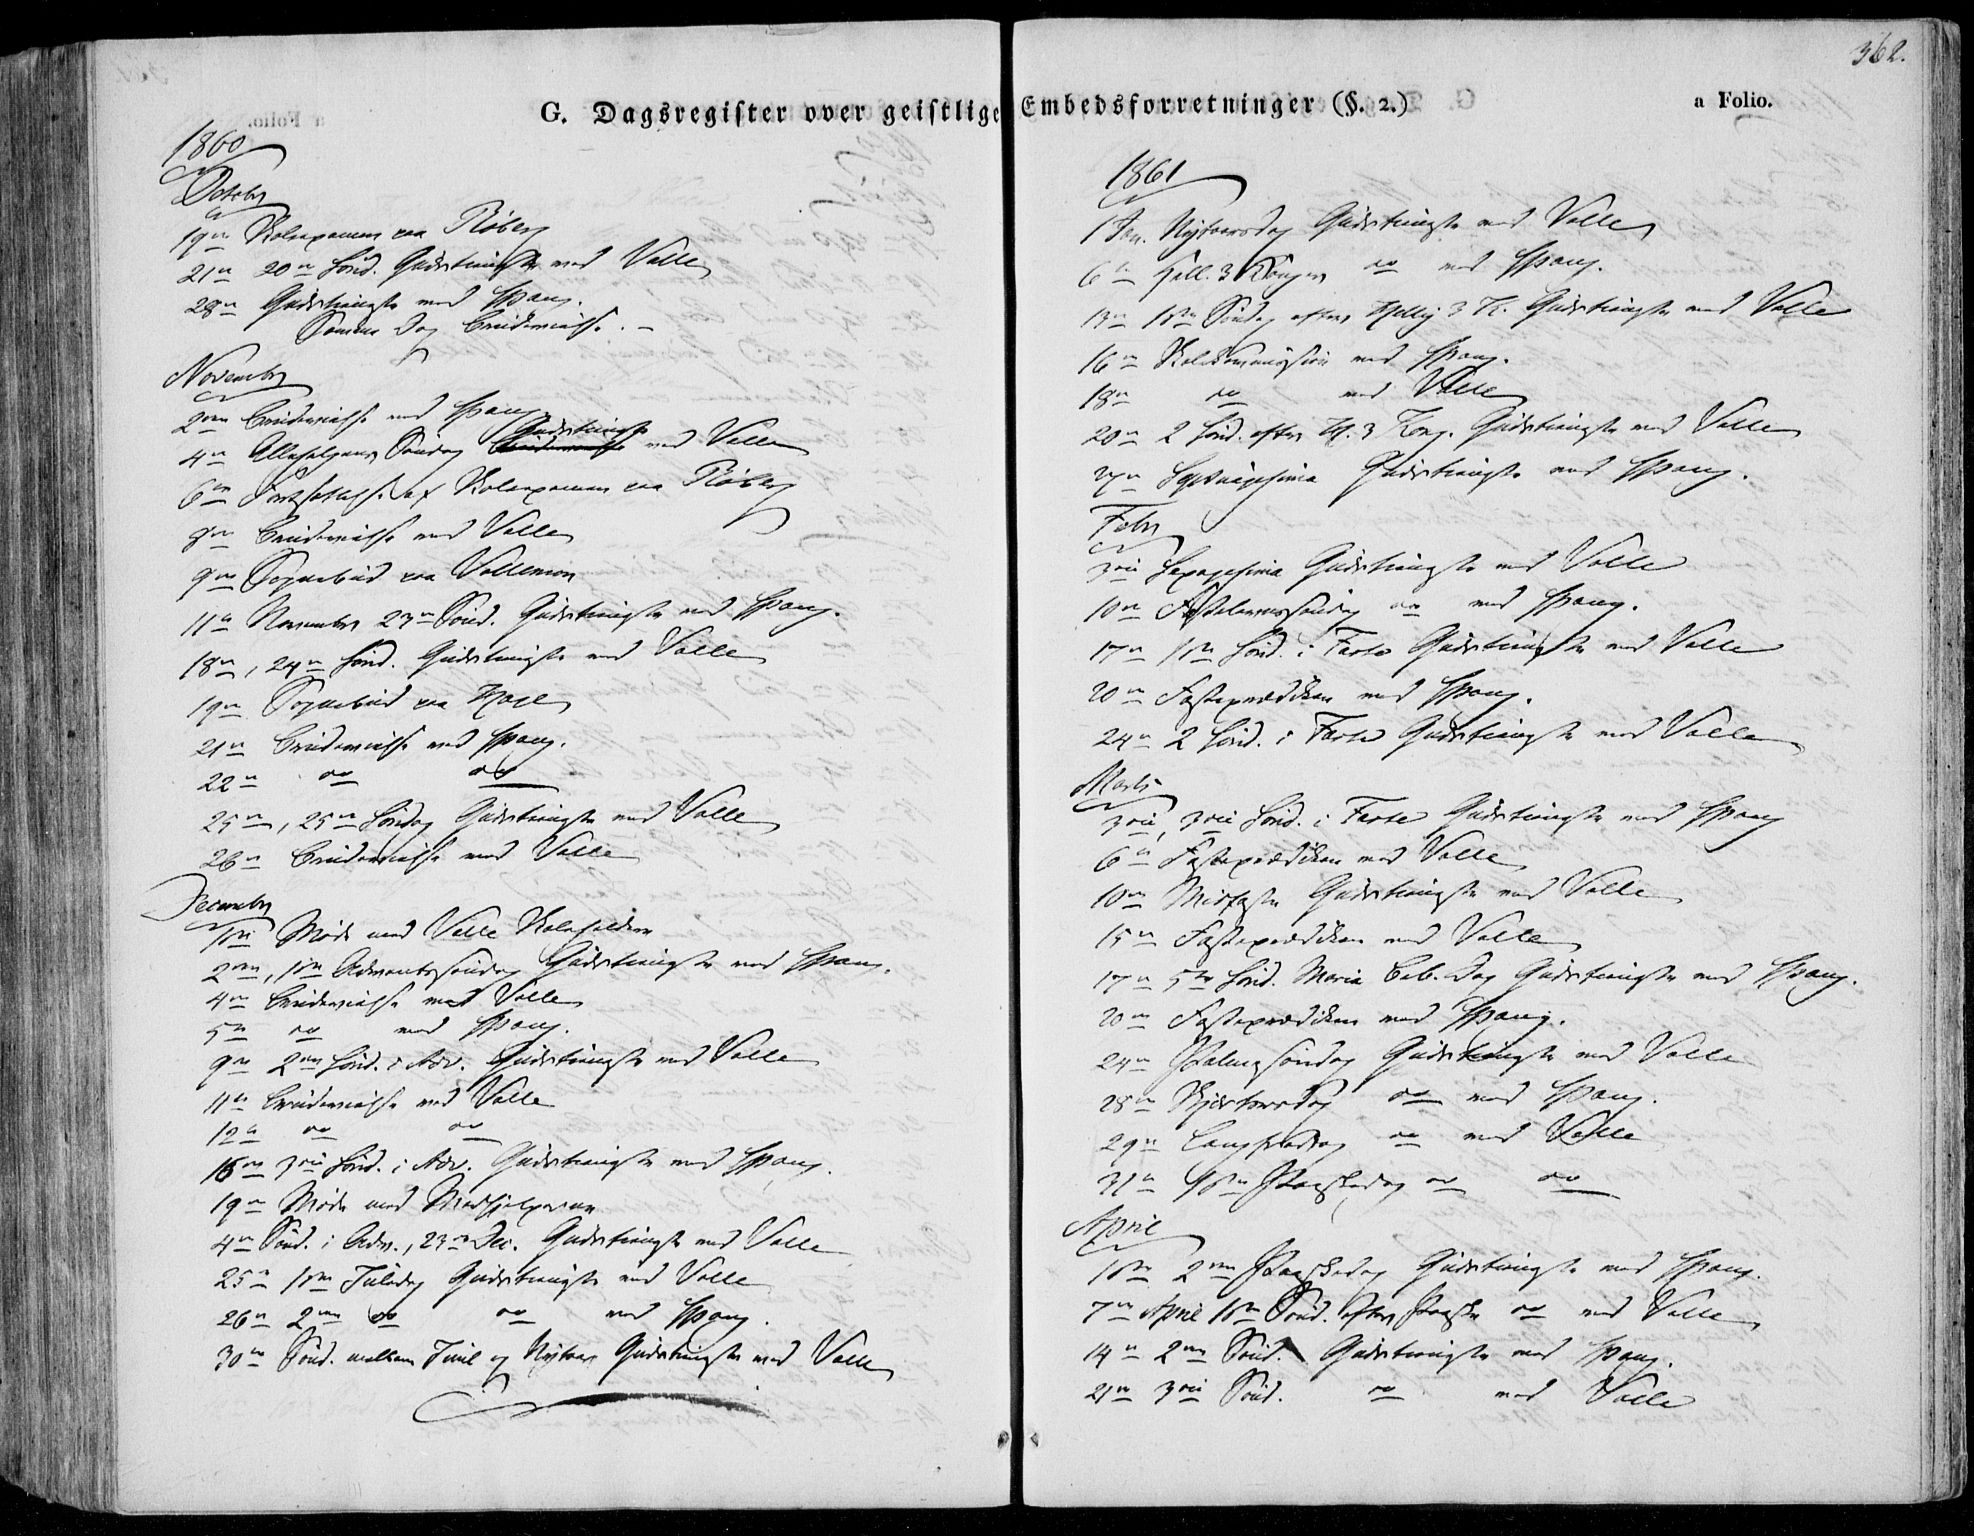 362.
G. Dagsregister over geistlige Embedsforretninger (§. 2.)
a Folio.
1860
October
19de Skoleexamen paa Röberg
21de 20de Sönd. Gudstieneste ved Valle
28de Gudstieneste ved Spang.
Samme Dag Brudevielse. –
November
2den Brudevielse ved Spang
4de Allehelgens Söndag Gudstieneste ved Valle
6te Fortsættelse af Skoleexamen paa Röberg
8de Brudevielse ved Valle
9de Sognebud paa Vallemon
11te November 23de Sönd. Gudstieneste ved Spang.
18de, 24de Sönd. Gudstieneste ved Valle
19de Sognebud paa
21de Brudevielse ved Spang.
22de do do
25de, 25de Söndag Gudstieneste ved Valle
26de Brudevielse ved Valle
December
1ste Möde med Valle
2den, 1ste Adventssöndag Gudstieneste ved Spang.
4de Brudevielse ved Valle
5te do ved Spang.
9de 2den Sönd. i Adv. Gudstieneste ved Valle
11te Brudevielse ved Valle
12te do do
16de 3die Sönd. i Adv. Gudstieneste ved Spang.
19de Möde med Medhjelperne
4de Sönd. i Adv., 23de Dec. Gudstieneste ved Valle
25de 1ste Juledag Gudstieneste ved Valle
26de 2den do do ved Spang.
30de Sönd. mellem Juul og Nytaar Gudstieneste ved Valle
1861
1 Jan. Nytaarsdag Gudstieneste ved Valle
6te Hell. 3 Konger do ved Spang.
13de 1ste Söndag efter Hellig 3 K. Gudstieneste ved Valle
16de Skolekommission ved Spang.
18de do ved Valle
20de 2 Sönd. efter H. 3 Kong. Gudstieneste ved Valle
27de Septuagesima Gudstieneste ved Spang.
Febr
3die Sexagesima Gudstieneste ved Valle
10de Fastelavnssöndag do ved Spang.
17de 1ste Sönd. i Faste Gudstieneste ved Valle
20de Fasteprædiken ved Spang.
24de 2 Sönd. i Faste Gudstieneste ved Valle
Marts
3die, 3die Sönd. i Faste Gudstieneste ved Spang
6te Fasteprædiken ved Valle
10de Midfaste Gudstieneste ved Valle
15de Fasteprædiken ved Valle
17de 5te Sönd. Maria Beb. Dag Gudstieneste ved Spang.
20de Fasteprædiken ved Spang.
24de Palmesöndag Gudstieneste ved Valle
28de Skjærtorsdag do ved Spang.
29de Langfredag do ved Valle
31te 1ste Paaskedag do do
April
1ste 2den Paaskedag Gudstieneste ved Spang.
7de April 1ste Sönd. efter Paaske do ved Valle
14de 2den Sönd. Gudstieneste ved Spang.
21de 3die Sönd. do ved Valle